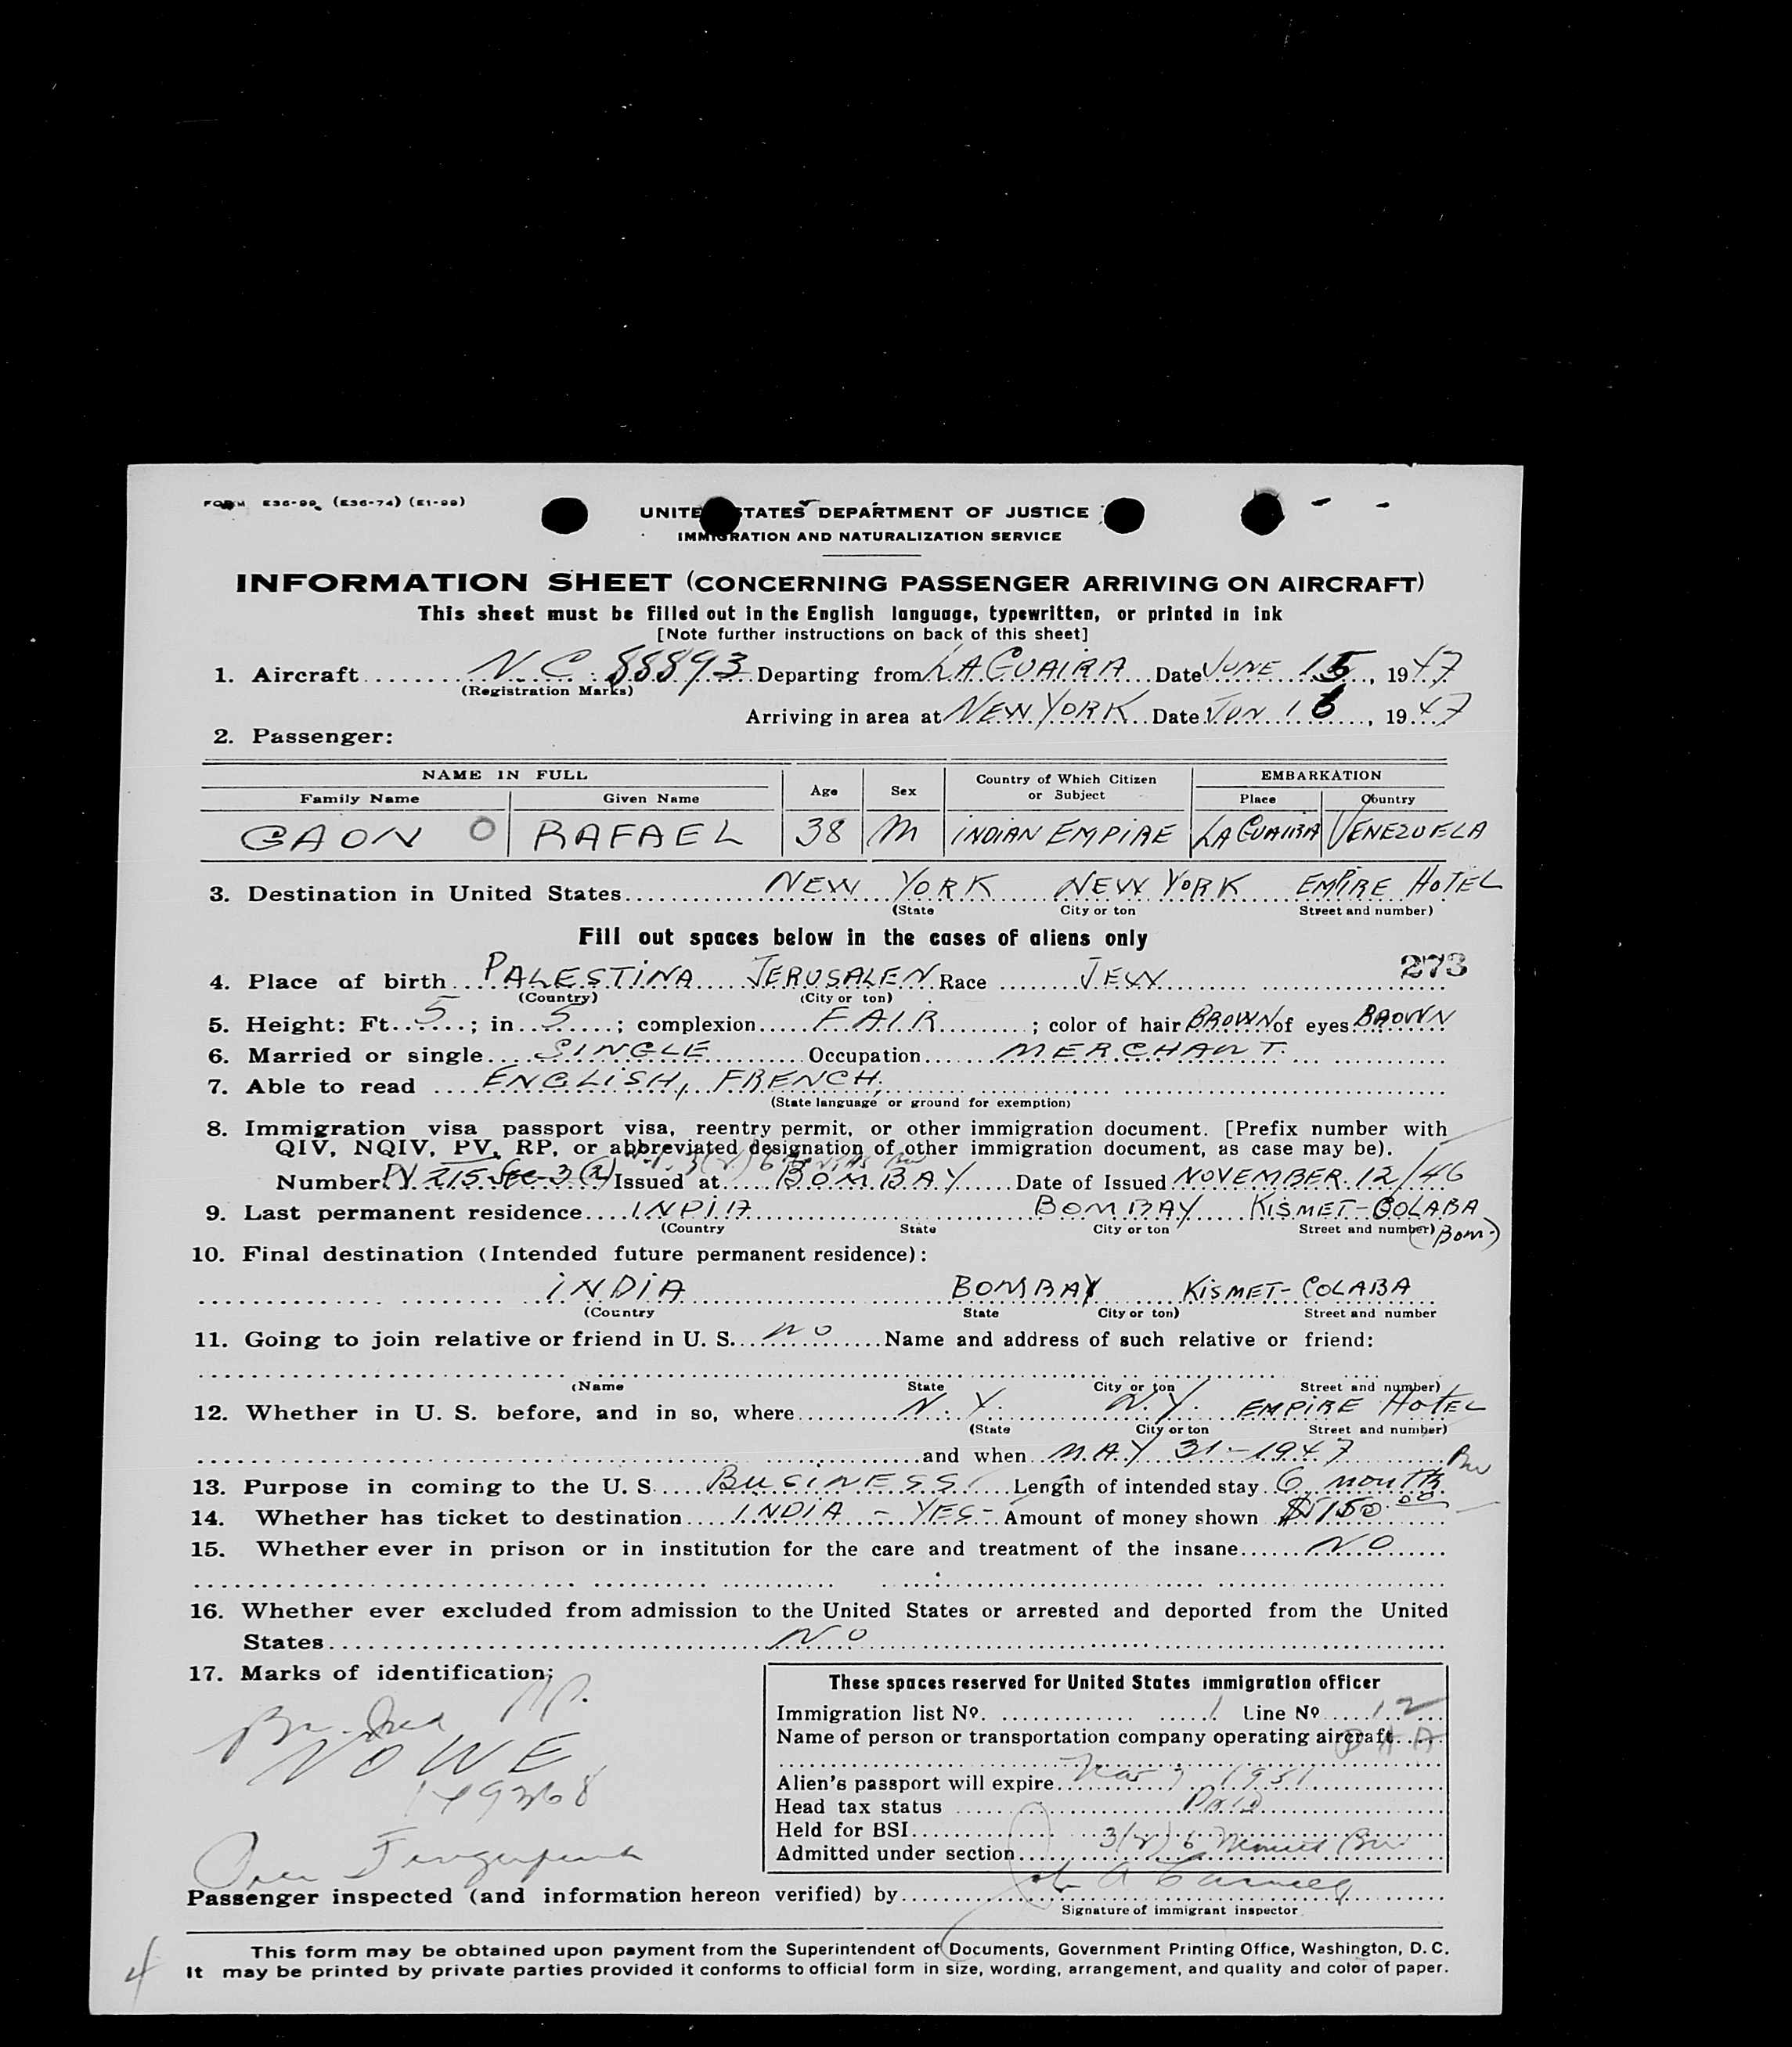 FORM E36-99 (E36-74) (E1-99)
UNITED STATES DEPARTMENT OF JUSTICE
IMMIGRATION AND NATURALIZATION SERVICE
INFORMATION SHEET (CONCERNING PASSENGER ARRIVING ON AIRCRAFT)
This sheet must be filled out in the English language, typewritten, or printed in ink
[Note further instructions on back of this sheet]
1. Aircraft N.C. 88893 Departing from LA GUAIRA Date JUNE 15, 1947
(Registration Marks)
Arriving in area at NEW YORK Date JUN 16, 1947
2. Passenger:
NAME IN FULL Age Sex Country of Which Citizen or Subject EMBARKATION
Family Name Given Name Place Country
GAON O RAFAEL 38 M INDIAN EMPIRE LA GUAIRA VENEZUELA
3. Destination in United States NEW YORK NEW YORK EMPIRE HOTEL
(State City or ton Street and number)
Fill out spaces below in the cases of aliens only
273
4. Place of birth PALESTINA JERUSALEN Race JEW
(Country) (City or ton)
5. Height: Ft. 5; in. 5; complexion FAIR; color of hair BROWN of eyes BROWN
6. Married or single SINGLE Occupation MERCHANT.
7. Able to read ENGLISH, FRENCH.
(State language or ground for exemption)
8. Immigration visa passport visa, reentry permit, or other immigration document. [Prefix number with
QIV, NQIV, PV, RP, or abbreviated designation of other immigration document, as case may be).
Number PV 215 Sec-3(2) Issued at BOMBAY Date of Issued NOVEMBER 12/46
9. Last permanent residence INDIA BOMBAY KISMET-COLABA
(Country State City or ton Street and number) (Bom-)
10. Final destination (Intended future permanent residence):
INDIA BOMBAY KISMET-COLABA
(Country State City or ton) Street and number
11. Going to join relative or friend in U. S. NO Name and address of such relative or friend:
(Name State City or ton Street and number)
12. Whether in U. S. before, and in so, where N.Y. N.Y. EMPIRE HOTEL
(State City or ton Street and number)
and when MAY 31-1947
13. Purpose in coming to the U. S BUSINESS Length of intended stay 6 month
14. Whether has ticket to destination INDIA - YES - Amount of money shown $150.00
15. Whether ever in prison or in institution for the care and treatment of the insane NO
16. Whether ever excluded from admission to the United States or arrested and deported from the United
States NO
17. Marks of identification;
NOWE
149368
These spaces reserved for United States immigration officer
Immigration list Nº. 1 Line Nº 12
Name of person or transportation company operating aircraft PAA
Alien's passport will expire 1951
Head tax status Paid
Held for BSI
Admitted under section 3(2) 6
Passenger inspected (and information hereon verified) by
Signature of immigrant inspector
This form may be obtained upon payment from the Superintendent of Documents, Government Printing Office, Washington, D. C.
It may be printed by private parties provided it conforms to official form in size, wording, arrangement, and quality and color of paper.
4